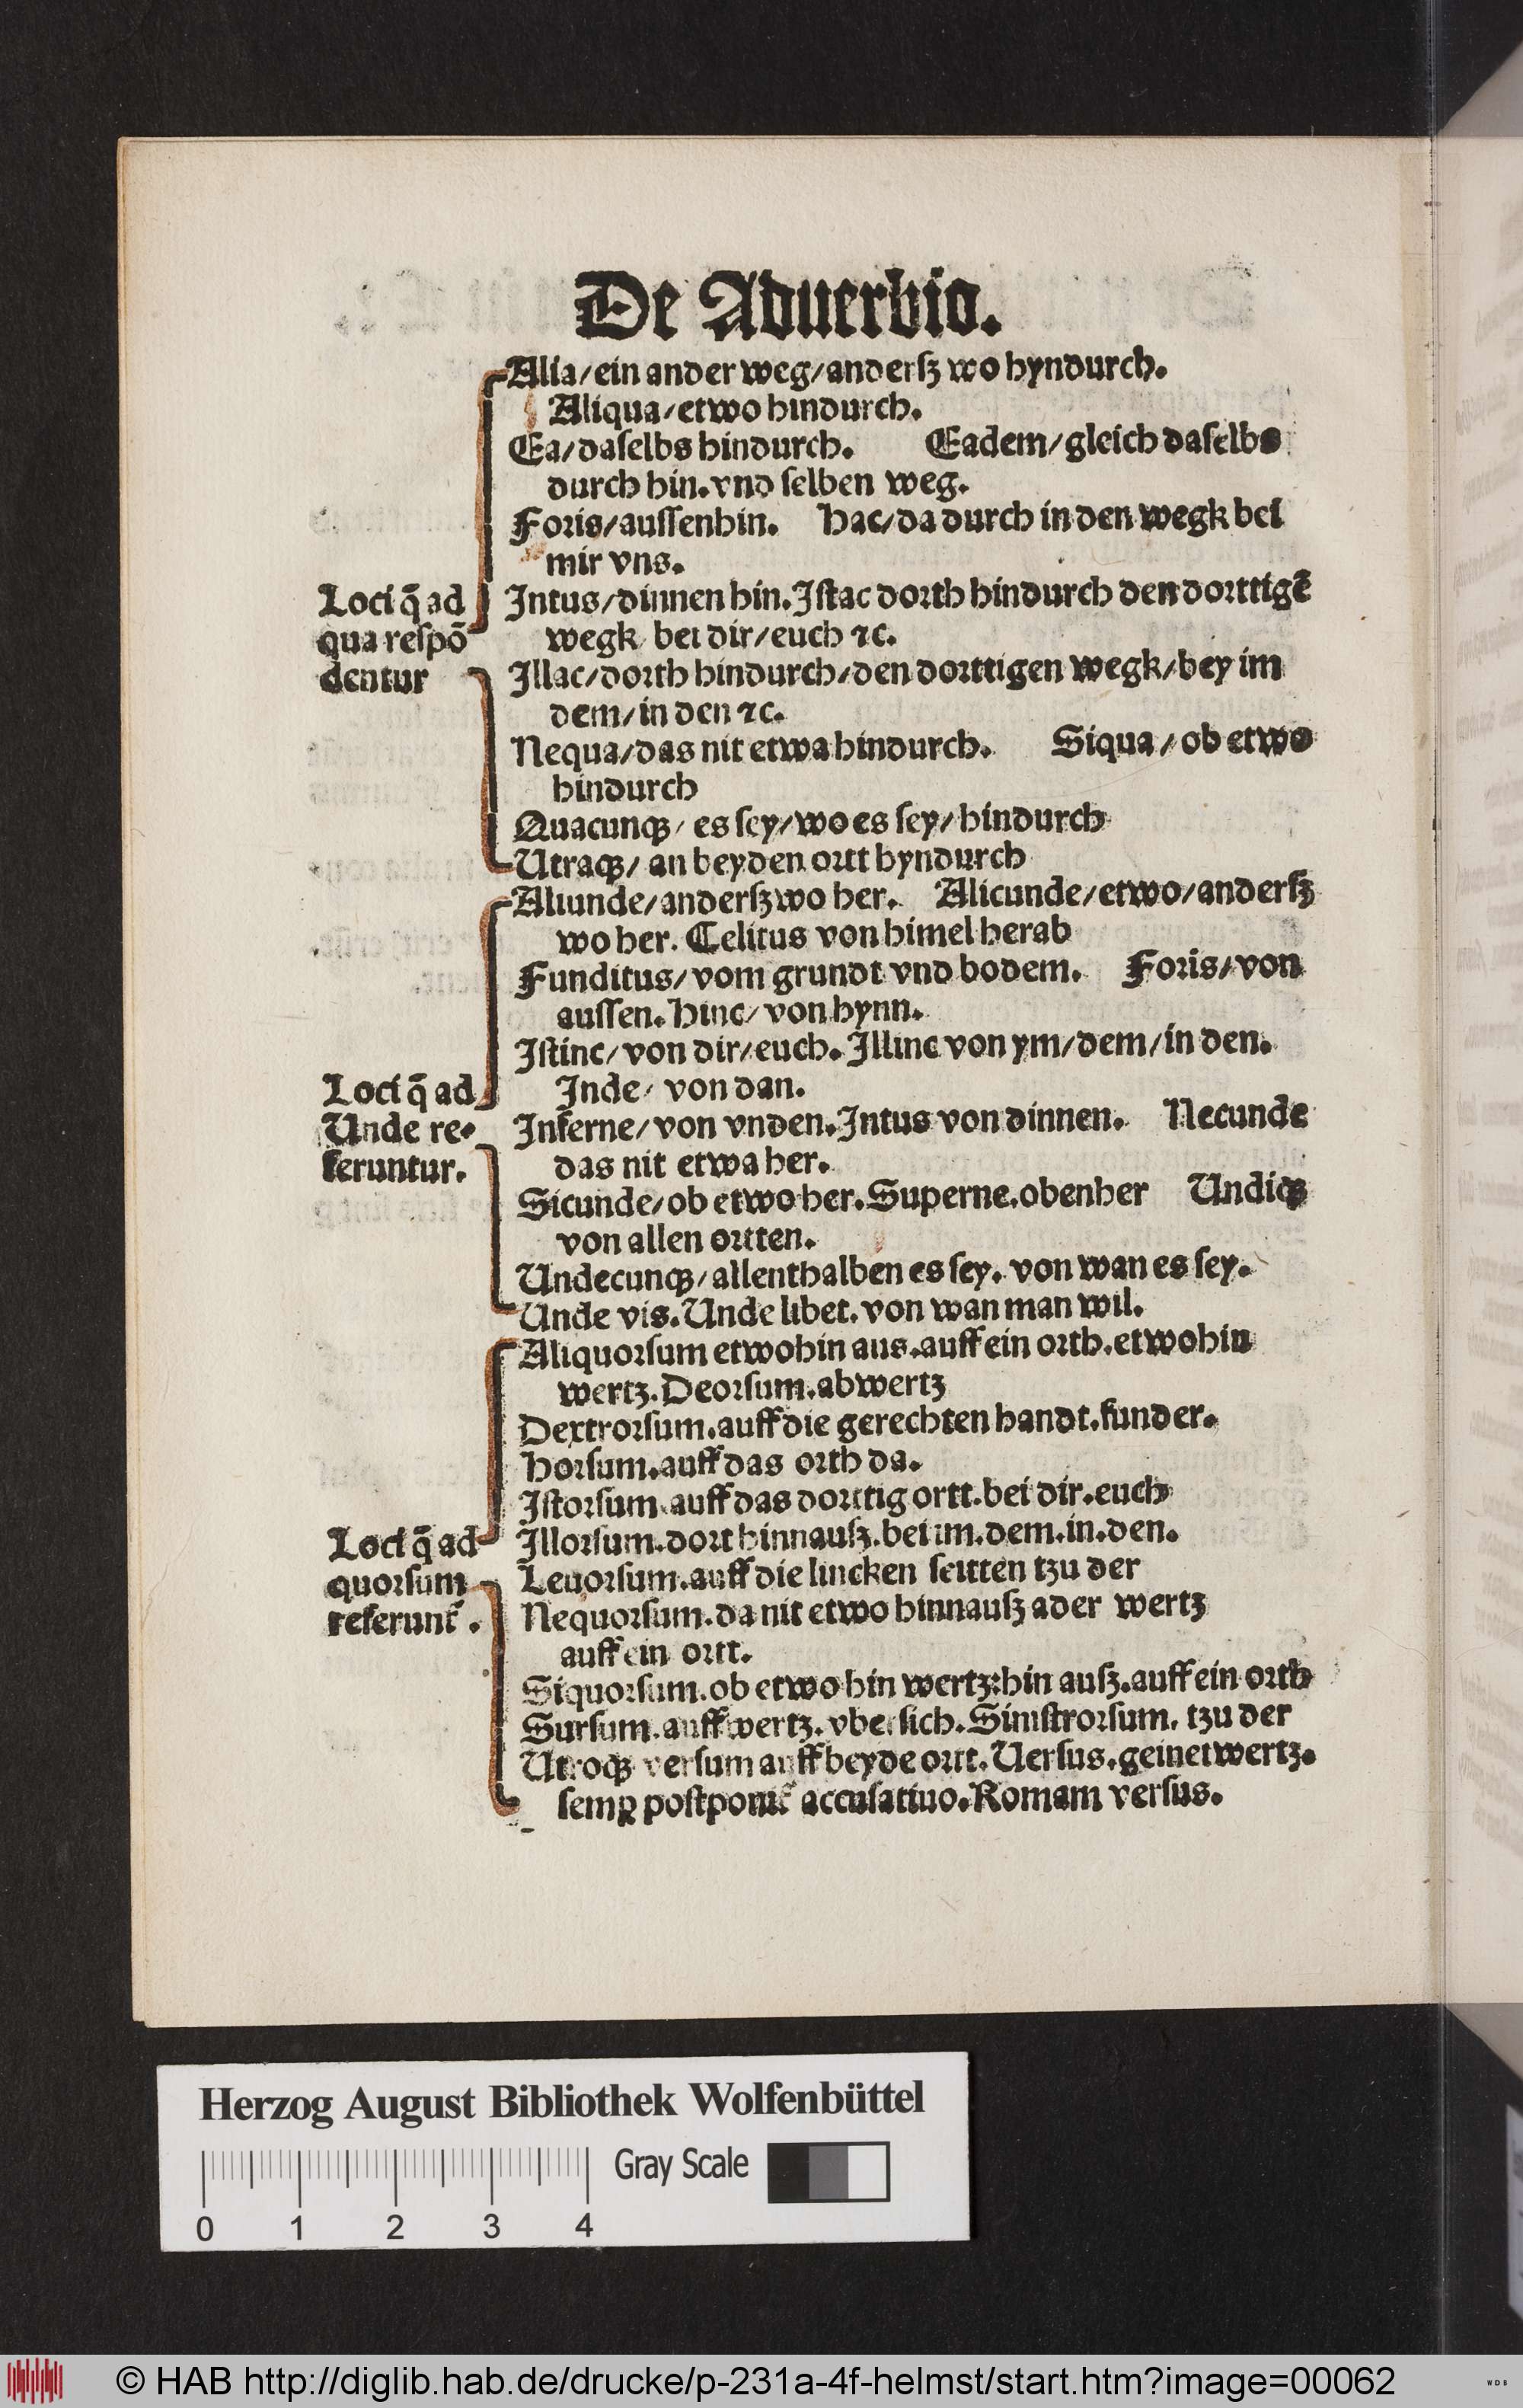 De Aduerbio.
Alia/ein ander weg/anderſz wo hyndurch.
Aliqua/etwo hindurch.
Ea/daſelbs hindurch. Eadem/gleich daſelbs
durch hin.vnd ſelben weg.
Foris/auſſenhin. Hac/da durch in den wegk bei
mir vns.
Loci q̄ ad
qua reſpō
dentur
Intus/dinnen hin.Iſtac dorth hindurch den dorttigē
wegk bei dir/euch ⁊c.
Illac/dorth hindurch/den dorttigen wegk/bey im
dem/in den ⁊c.
Nequa/das nit etwa hindurch. Siqua/ob etwo
hindurch
Quacunqꝫ/es ſey/wo es ſey/hindurch
Utraqꝫ/an beyden ortt hyndurch
Aliunde/anderſz wo her. Alicunde/etwo/anderſz
wo her. Celitus von himel herab
Funditus/vom grundt vnd bodem. Foris/von
auſſen.Hinc/von hynn.
Iſtinc/von dir/euch.Illinc von ym/dem/in den.
Inde/von dan.
Loci q̄ ad
Unde re⸗
feruntur.
Inferne/von vnden.Intus von dinnen. Necunde
das nit etwa her.
Sicunde/ob etwo her.Superne.obenher Undiqꝫ
von allen ortten.
Undecunqꝫ/allenthalben es ſey.von wan es ſey.
Unde vis.Unde libet.von wan man wil.
Aliquorſum etwohin aus.auff ein orth.etwohin
wertz.Deorſum.abwertz
Dextrorſum.auff die gerechten handt.funder.
Horſum.auff das orth da.
Iſtorſum.auff das dorttig ortt.bei dir.euch
Loci q̄ ad
quorſum
referunt᷑.
Illorſum.dort hinnauſz.bei im.dem.in.den.
Leuorſum.auff die lincken ſeitten tzu der
Nequorſum.da nit etwo hinnauſz ader wertz
auff ein ortt.
Siquorſum.ob etwo hin wertz:hin auſz.auff ein orth
Surſum.auff wertz.vber ſich.Siniſtrorſum.tzu der
Utroqꝫ verſum auff beyde ortt.Uerſus.geinetwertz.
ſemꝑ poſtponit᷑ accuſatiuo.Romam verſus.
Herzog August Bibliothek Wolfenbüttel
Gray Scale
0 1 2 3 4
© HAB http://diglib.hab.de/drucke/p-231a-4f-helmst/start.htm?image=00062
WDB